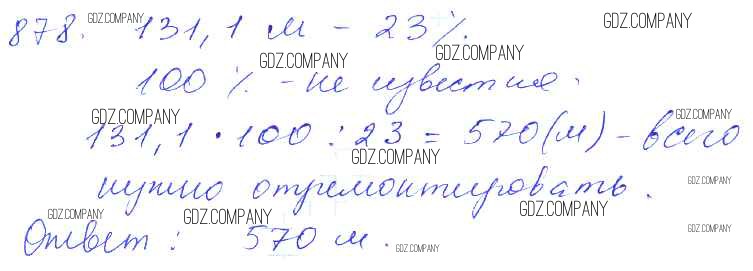 878. 131,1 м - 23%.
100% - не известно.
131,1 · 100 : 23 = 570(м) - всего
нужно отремонтировать.
Ответ: 570 м.
GDZ.COMPANY
GDZ.COMPANY
GDZ.COMPANY
GDZ.COMPANY
GDZ.COMPANY
GDZ.COMPANY
GDZ.COMPANY
GDZ.COMPANY
GDZ.COMPANY
GDZ.COMPANY
GDZ.COMPANY
GDZ.COMPANY
GDZ.COMPANY
GDZ.COMPANY